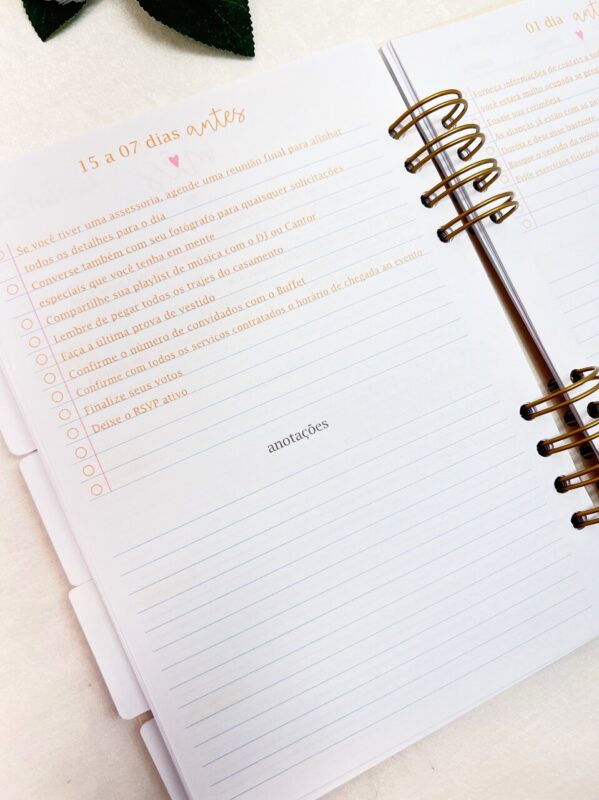 15 a 07 dias antes
Se você tiver uma assessoria, agende uma reunião final para alinhar
todos os detalhes para o dia
Converse também com seu fotógrafo para quaisquer solicitações
especiais que você tenha em mente
Compartilhe sua playlist de música com o DJ ou Cantor
Lembre de pegar todos os trajes do casamento
Faça a última prova de vestido
Confirme o número de convidados com o Buffet
Confirme com todos os serviços contratados o horário de chegada ao evento
Finalize seus votos
Deixe o RSVP ativo
anotações
01 dia antes
Forneça informações de contato a
você estará muito ocupada se
Ensaie sua cerimônia
As alianças já estão com as
Durma e descanse bastante
Busque o vestido da
Evite exercícios físicos